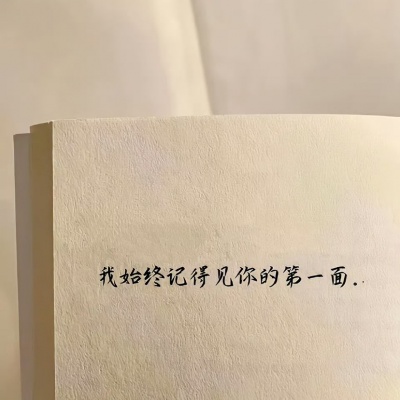 我始终记得见你的第一面.